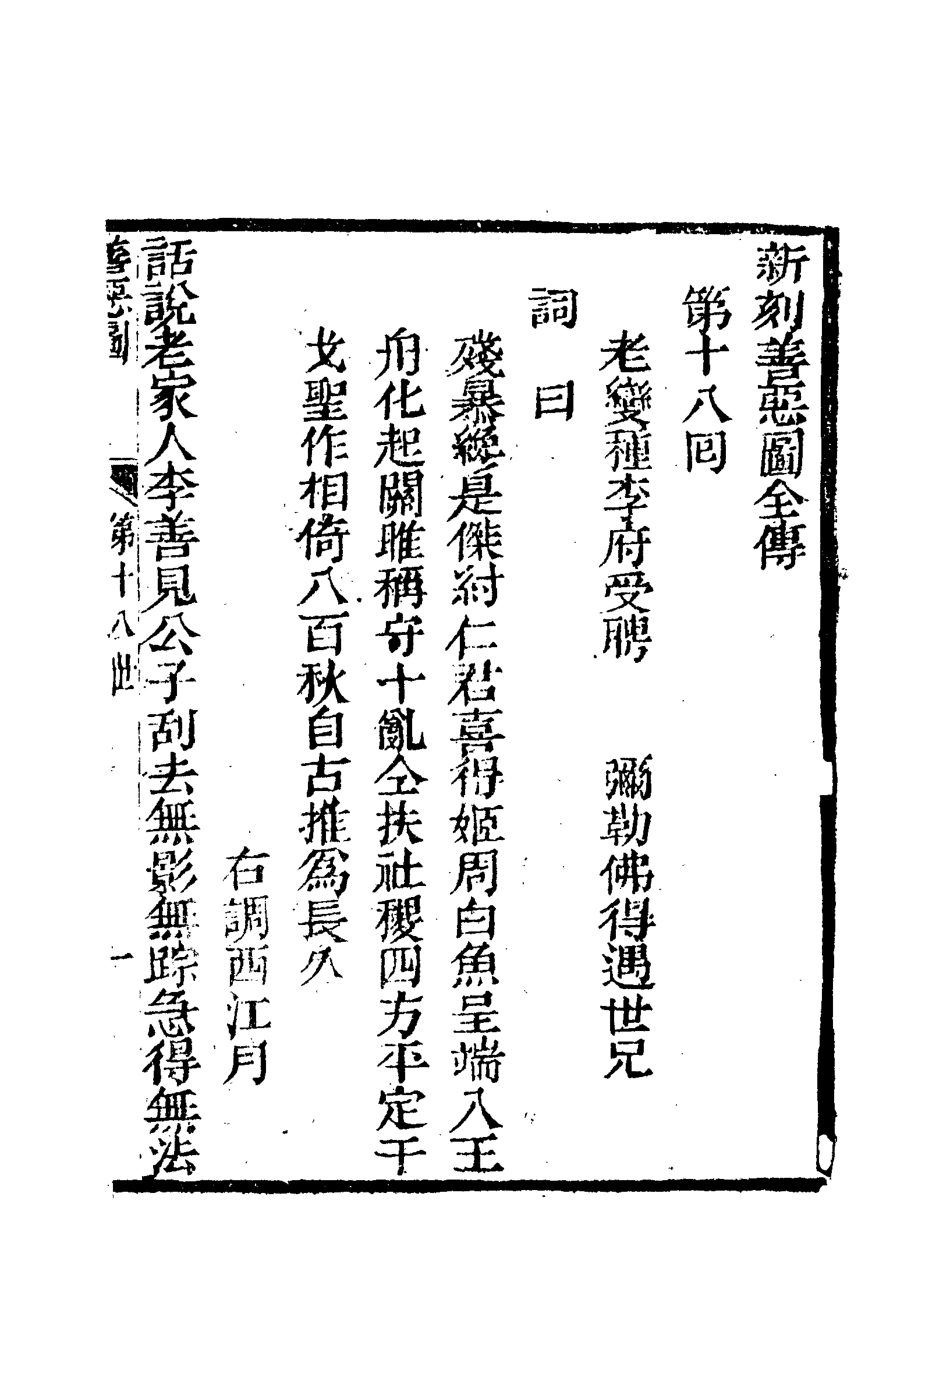 新刻善惡圖全傳
第十八回
老變種李府受聘　彌勒佛得遇世兄
詞曰
殘暴總是傑紂仁君喜得姬周白魚呈端入王
舟化起關雎稱守十亂仝扶社稷四方平定干
戈聖作相倚八百秋自古推爲長久
右調西江月
話說老家人李善見公子刮去無影無踪急得無法
善惡圖　第十八回　一